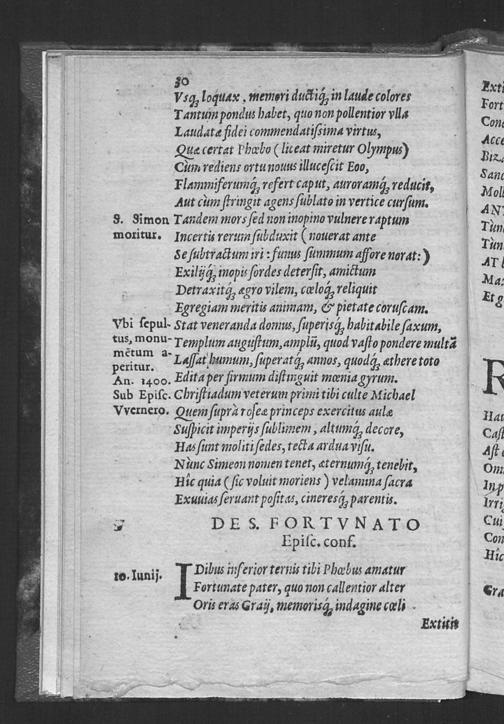 30
Vsq́; loquax, memori ductiq́; in laude colores
Tantum pondus habet, quo non pollentior vlla
Laudatæ fidei commendatissima virtus,
Quæ certat Phœbo (liceat miretur Olympus)
Cùm rediens ortu nouus illucescit Eoo,
Flammiferumq́; refert caput, auroramq́; reducit,
Aut cùm stringit agens sublato in vertice cursum.
S. Simon moritur.
Tandem mors sed non inopino vulnere raptum
Incertis rerum subduxit (nouerat ante
Se subtractum iri: funus summum affore norat:)
Exilijq́; inopis sordes detersit, amictum
Detraxitq́; ægro vilem, cœloq́; reliquit
Egregiam meritis animam, & pietate coruscam.
Vbi sepul-
tus, monu-
mētum a-
peritur.
An. 1400.
Sub Episc.
Vvernero.
Stat veneranda domus, superisq́; habitabile saxum,
Templum augustum, amplū, quod vasto pondere multā
Lassat humum, superatq́; annos, quodq́; æthere toto
Edita per firmum distinguit mœnia gyrum.
Christiadum veterum primi tibi culte Michael
Quem suprà roseæ princeps exercitus aulæ
Suspicit imperijs sublimem, altumq́; decore,
Has sunt moliti sedes, tecta ardua visu.
Nùnc Simeon nomen tenet, æternumq́; tenebit,
Hîc quia (sic voluit moriens) velamina sacra
Exuuias seruant positas, cineresq́; parentis.
DE S. FORTVNATO
Episc. conf.
10. Iunij.
IDibus inferior ternis tibi Phœbus amatur
Fortunate pater, quo non callentior alter
Oris eras Graij, memorisq́; indagine cœli
Extitis
Exti
Fort
Conc
Acce
Sanc
Moll
Tùm
Tùn
AT
Ma
Et g
R
Hau
Cast
Ast
Omn
In p
Irri
Cui
Con
Hic
Gra